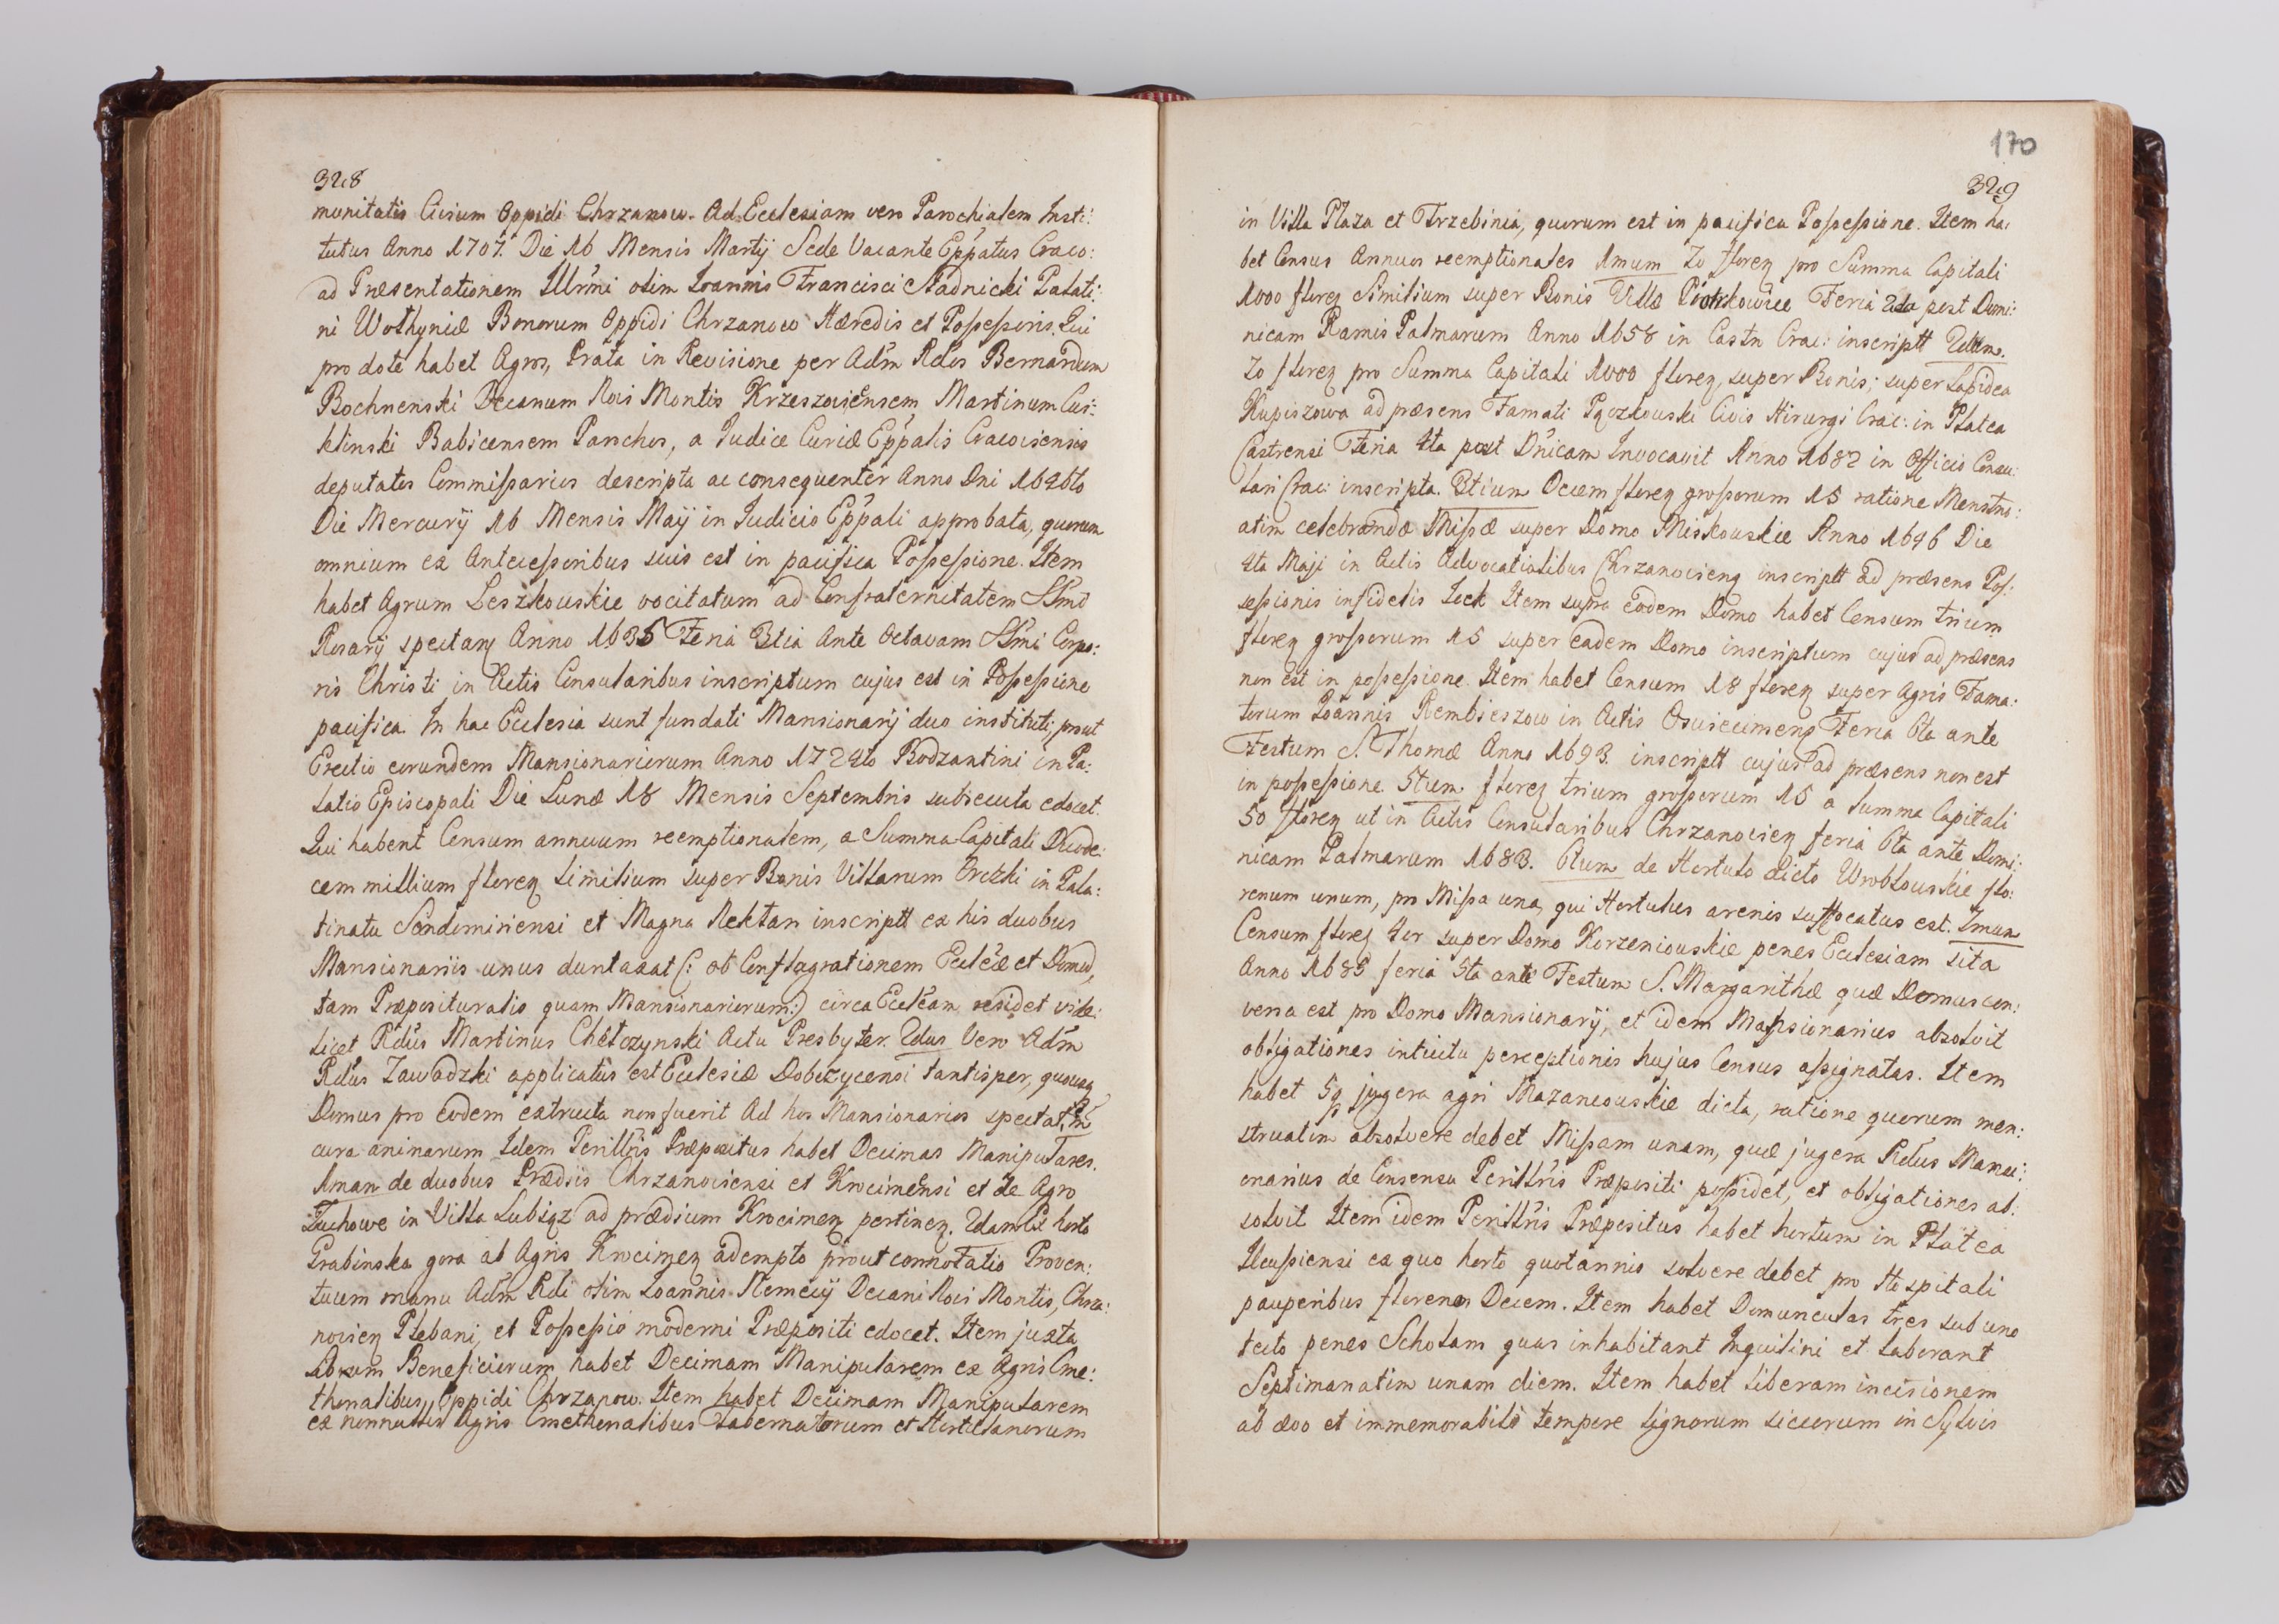 328
munitatis Civium Oppidi Chrzanow. Ad Ecclesiam vero Parochialem Insti:
tutus Anno 1707. Die 16 Mensis Martij Sede Vacante Eppatus Craco:
ad Præsentationem Illrmi olim Ioannis Francisci Stadnicki Palati:
ni Wolhyniæ Bonorum Oppidi Chrzanow Hæredis et Possessoris, Qui
pro dote habet Agros, Prata in Revisione per Adm Rdos Bernardum
Bochnenski Decanum Novi Montis Krzeszoviensem Martinum Cus:
klinski Babicensem Parochos, a Iudice Curiæ Eppalis Cracoviensis
deputatos Commissarios descripta ac consequenter Anno Dni 1646to
Die Mercurij 16 Mensis Maij in Iudicio Eppali approbata, quorum
omnium ex Antecessoribus suis est in pacifica Possessione. Item
habet Agrum Leszkouskie vocitatum ad Confraternitatem SSmi
Rosarij spectanẽ Anno 1635 Feria 3tia Ante Octavam SSmi Corpo:
ris Christi in Actis Consularibus inscriptum cujus est in Possessione
pacifica. In hac Ecclesia sunt fundati Mansionarij duo instituti, prout
Erectio eorundem Mansionariorum Anno 1724to Bodzantini in Pa:
latio Episcopali Die Lunæ 18 Mensis Septembris subsecuta edocet.
Qui habent Censum annuum reemptionalem, a Summa Capitali Duode:
cem millium florenẽ similium super Bonis Villarum in Pala:
tinatu Sendomiriensi et Magna inscriptt ex his duobus
Mansionariis unus duntaxat (: ob Conflagrationem Eccleæ et Domus,
tam Præposituralis quam Mansionariorum:) circa Eccleam residet vide:
licet Rdus Martinus Chełczynski Actu Presbyter. 2dus Vero Adm
Rdus Zawadzki applicatus est Ecclesiæ Dobczycensi tantisper, quousq
Domus pro eodem extructa non fuerit Ad hos Mansionarios spectat, in
cura animarum Idem Perillris Præpositus habet Decimas Manipulares.
1mam de duobus Prædiis Chrzanoviensi et Krocimensi et de Agro
Zuchowe in Villa Lubiąz ad prædium Krocimen pertinen. 2dam ex horto
Grabinska gora ab Agris Krocimen adempto prout connotatio Proven:
tuum manu Adm Rdi olim Ioannis Nemecij Decani Novi Montis, Chrza:
novien Plebani, et Possessio moderni Præpositi edocet. Item juxta
Librum Beneficiorum habet Decimam Manipularem ex Agris Cme:
thonalibus Oppidi Chrzanow. Item habet Decimam Manipularem
ex nonnullis Agris Cmethonalibus Tabernatorum et Hortulanorum
170
329
in Villa Płaza et Trzebinia, quorum est in pacifica Possessione. Item ha:
bet Census Annuos reemptionales 1mum 70 floren pro Summa Capitali
1000 floren similium super Bonis Villæ Piotrkowice Feria 2da post Domi:
nicam Ramis Palmarum Anno 1658 in Castro Crac: inscriptt 2dum.
70 floren pro Summa Capitali 1000 floren, super Bonis; super Lapidea
Kupiszowa ad præsens Famati Pączkouski Civis Hirurgi Crac: in Platea
Castrensi Feria 4ta post Dnicam Invocavit Anno 1682 in Officio Consu:
lari Crac: inscripta. 3tium Decem floren grossorum 15 ratione Menstru:
atim celebrandæ Missæ super Domo Miskouskie Anno 1696 Die
4ta Maji in Actis Advocatialibus Chrzanovien inscriptt ad præsens Pos:
sessionis infidelis Icek Item supra eodem Domo habet Censum trium
floren grossorum 15 super eadem Domo inscriptum cujus ad præsens
non est in possessione. Item habet Censum 18 floren super Agris Fama:
torum Ioannis Rembieszow in Actis Osviecimen Feria 6ta ante
Festum S. Thomæ Anno 1693. inscriptt cujus ad præsens non est
in possessione 5tum floren trium grossorum 15 a Summa Capitali
50 floren ut in Actis Consularibus Chrzanovien feria 6ta ante Domi:
nicam Palmarum 1683. 6tum de Hortulo dicto Wroblouskie flo:
renum unum, pro Missa una, qui Hortulus arenis suffocatus est. 7mum
Censum floren 4or super Domo Korzeniouskie penes Ecclesiam sita
Anno 1685 feria 5ta ante Festum S. Margarithæ quæ Domus con:
versa est pro Domo Mansionarij, et idem Mansionarius absolvit
obligationes intuitu perceptionis hujus Census assignatas. Item
habet 5q jugera agri Mazancouskie dicta, ratione quorum men:
struatim absolvere debet Missam unam, quæ jugera Rdus Mansi:
onarius de Consensu Perillris Præpositi possidet, et obligationes ab:
solvit Item idem Perillris Præpositus habet hortum in Platea
Ilcussiensi ex quo horto quotannis solvere debet pro Hospitali
pauperibus florenos Decem. Item habet Domunculas tres sub uno
tecto penes Scholam quas inhabitant Inquilini et laborant
Septimanatim unam diem. Item habet liberam incisionem
ab ævo et immemorabili tempore lignorum siccorum in Sylvis